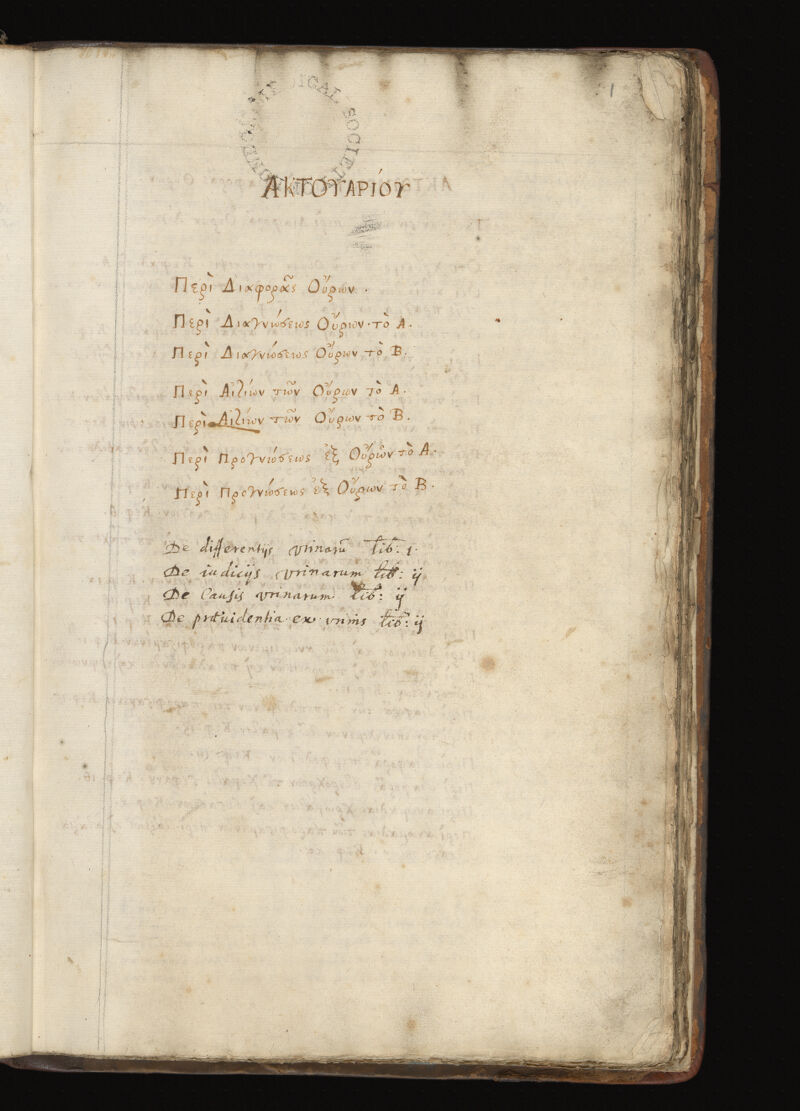 1
MEDICAL SOCIETY
ΑΚΤΟΥΑΡΊΟΥ
Περὶ Διαφορᾶς Οὔρων.
Περὶ Διαγνώσεως Οὔρων τὸ Α.
Περὶ Διαγνώσεως Οὔρων τὸ Β.
Περὶ Αἰτιῶν τῶν Οὔρων τὸ Α.
Περὶ Αἰτιῶν τῶν Οὔρων τὸ Β.
Περὶ Προγνώσεως ἐξ Οὔρων τὸ Α.
Περὶ Προγνώσεως ἐξ Οὔρων τὸ Β.
De differentijs vrinarū lib: 1.
De iudicijs vrinarum lib: ij
De Causis vrinarum lib: ij
De prævidentia ex vrinis lib: ij